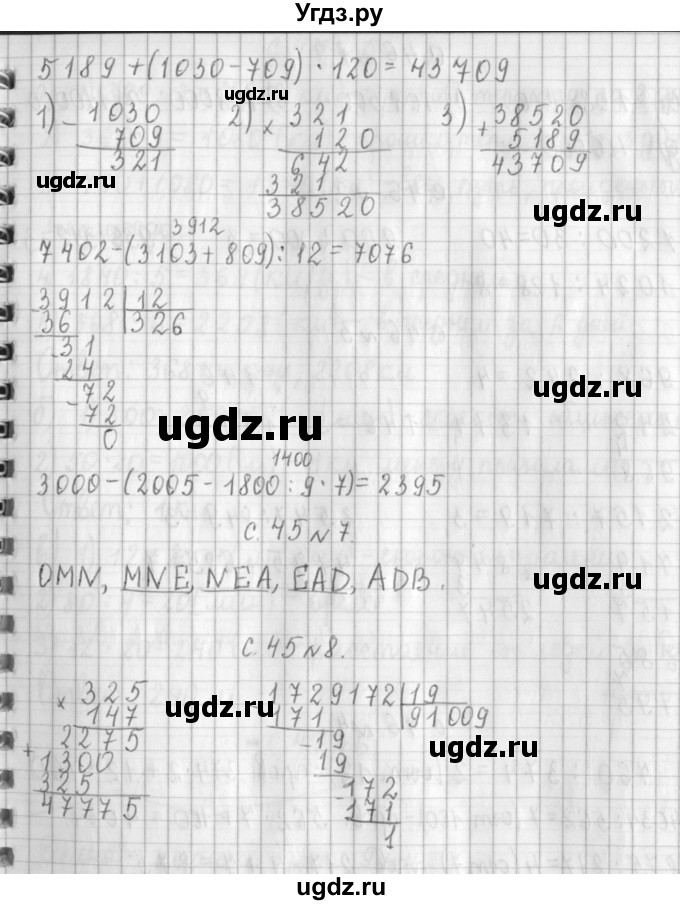 Угдз.ру
5189+(1030-709)·120=43709
1) 1030 2) 321 3) 38520
- × +
709 120 5189
321 642 43709
321
38520
3912
7402-(3103+809):12=7076
3912 12
36 326
31
24
- 72
72
0
1400
3000-(2005-1800:9·7)=2395
с. 45 №7.
OMN, MNE, NEA, EAD, ADB.
с. 45 №8.
× 325 1729172 19
147 171 91009
2275 - 19
+ 1300 19
325 - 172
47775 171
1
ugdz.ru
ugdz.ru
ugdz.ru
ugdz.ru
ugdz.ru
ugdz.ru
ugdz.ru
ugdz.ru
ugdz.ru
ugdz.ru
ugdz.ru
ugdz.ru